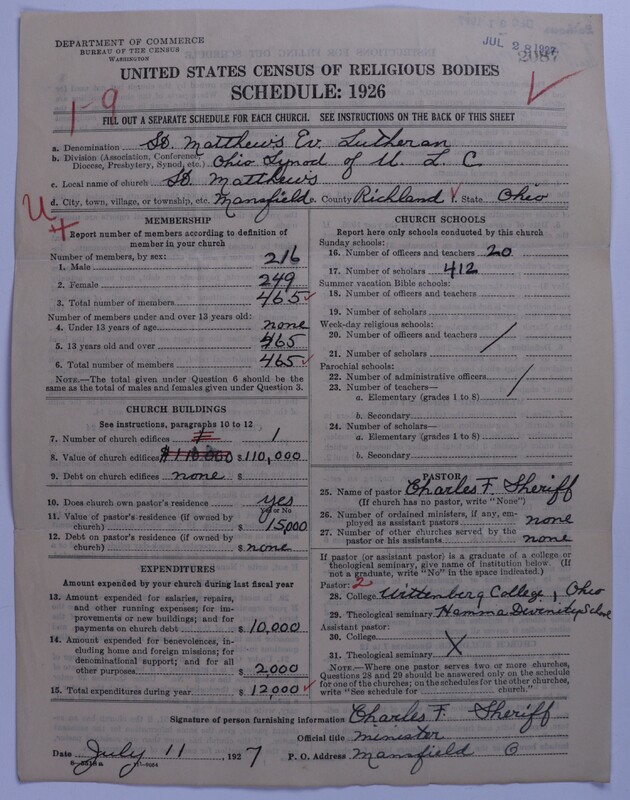 DEPARTMENT OF COMMERCE
BUREAU OF THE CENSUS
WASHINGTON
JUL 28 1927
2087
UNITED STATES CENSUS OF RELIGIOUS BODIES
SCHEDULE: 1926
1-9
FILL OUT A SEPARATE SCHEDULE FOR EACH CHURCH. SEE INSTRUCTIONS ON THE BACK OF THIS SHEET
a. Denomination St. Matthew's Ev. Lutheran
b. Division (Association, Conference, Diocese, Presbytery, Synod, etc.) Ohio Synod of U. L. C
c. Local name of church St. Matthew's
d. City, town, village, or township, etc. Mansfield e. County Richland f. State Ohio
MEMBERSHIP
Report number of members according to definition of member in your church
Number of members, by sex:
1. Male 216
2. Female 249
3. Total number of members 465
Number of members under and over 13 years old:
4. Under 13 years of age none
5. 13 years old and over 465
6. Total number of members 465
NOTE.—The total given under Question 6 should be the same as the total of males and females given under Question 3.
CHURCH BUILDINGS
See instructions, paragraphs 10 to 12
7. Number of church edifices 1
8. Value of church edifices $110,000 $ 110,000
9. Debt on church edifices none $
10. Does church own pastor's residence yes
Yes or No
11. Value of pastor's residence (if owned by church) $ 15,000
12. Debt on pastor's residence (if owned by church) $ none
EXPENDITURES
Amount expended by your church during last fiscal year
13. Amount expended for salaries, repairs, and other running expenses; for improvements or new buildings; and for payments on church debt $ 10,000
14. Amount expended for benevolences, including home and foreign missions; for denominational support; and for all other purposes $ 2,000
15. Total expenditures during year $ 12,000
CHURCH SCHOOLS
Report here only schools conducted by this church
Sunday schools:
16. Number of officers and teachers 20
17. Number of scholars 412
Summer vacation Bible schools:
18. Number of officers and teachers
19. Number of scholars
Week-day religious schools:
20. Number of officers and teachers
21. Number of scholars
Parochial schools:
22. Number of administrative officers
23. Number of teachers—
a. Elementary (grades 1 to 8)
b. Secondary
24. Number of scholars—
a. Elementary (grades 1 to 8)
b. Secondary
PASTOR
25. Name of pastor Charles F. Sheriff
(If church has no pastor, write "None")
26. Number of ordained ministers, if any, employed as assistant pastors none
27. Number of other churches served by the pastor or his assistants none
If pastor (or assistant pastor) is a graduate of a college or theological seminary, give name of institution below. (If not a graduate, write "No" in the space indicated.)
Pastor: 2
28. College Wittenberg College, Ohio
29. Theological seminary Hamma Devinity School
Assistant pastor:
30. College
31. Theological seminary X
NOTE.—Where one pastor serves two or more churches, Questions 28 and 29 should be answered only on the schedule for one of the churches; on the schedules for the other churches, write "See schedule for church."
Signature of person furnishing information Charles F. Sheriff
Official title Minister
Date July 11, 1927 P. O. Address Mansfield O